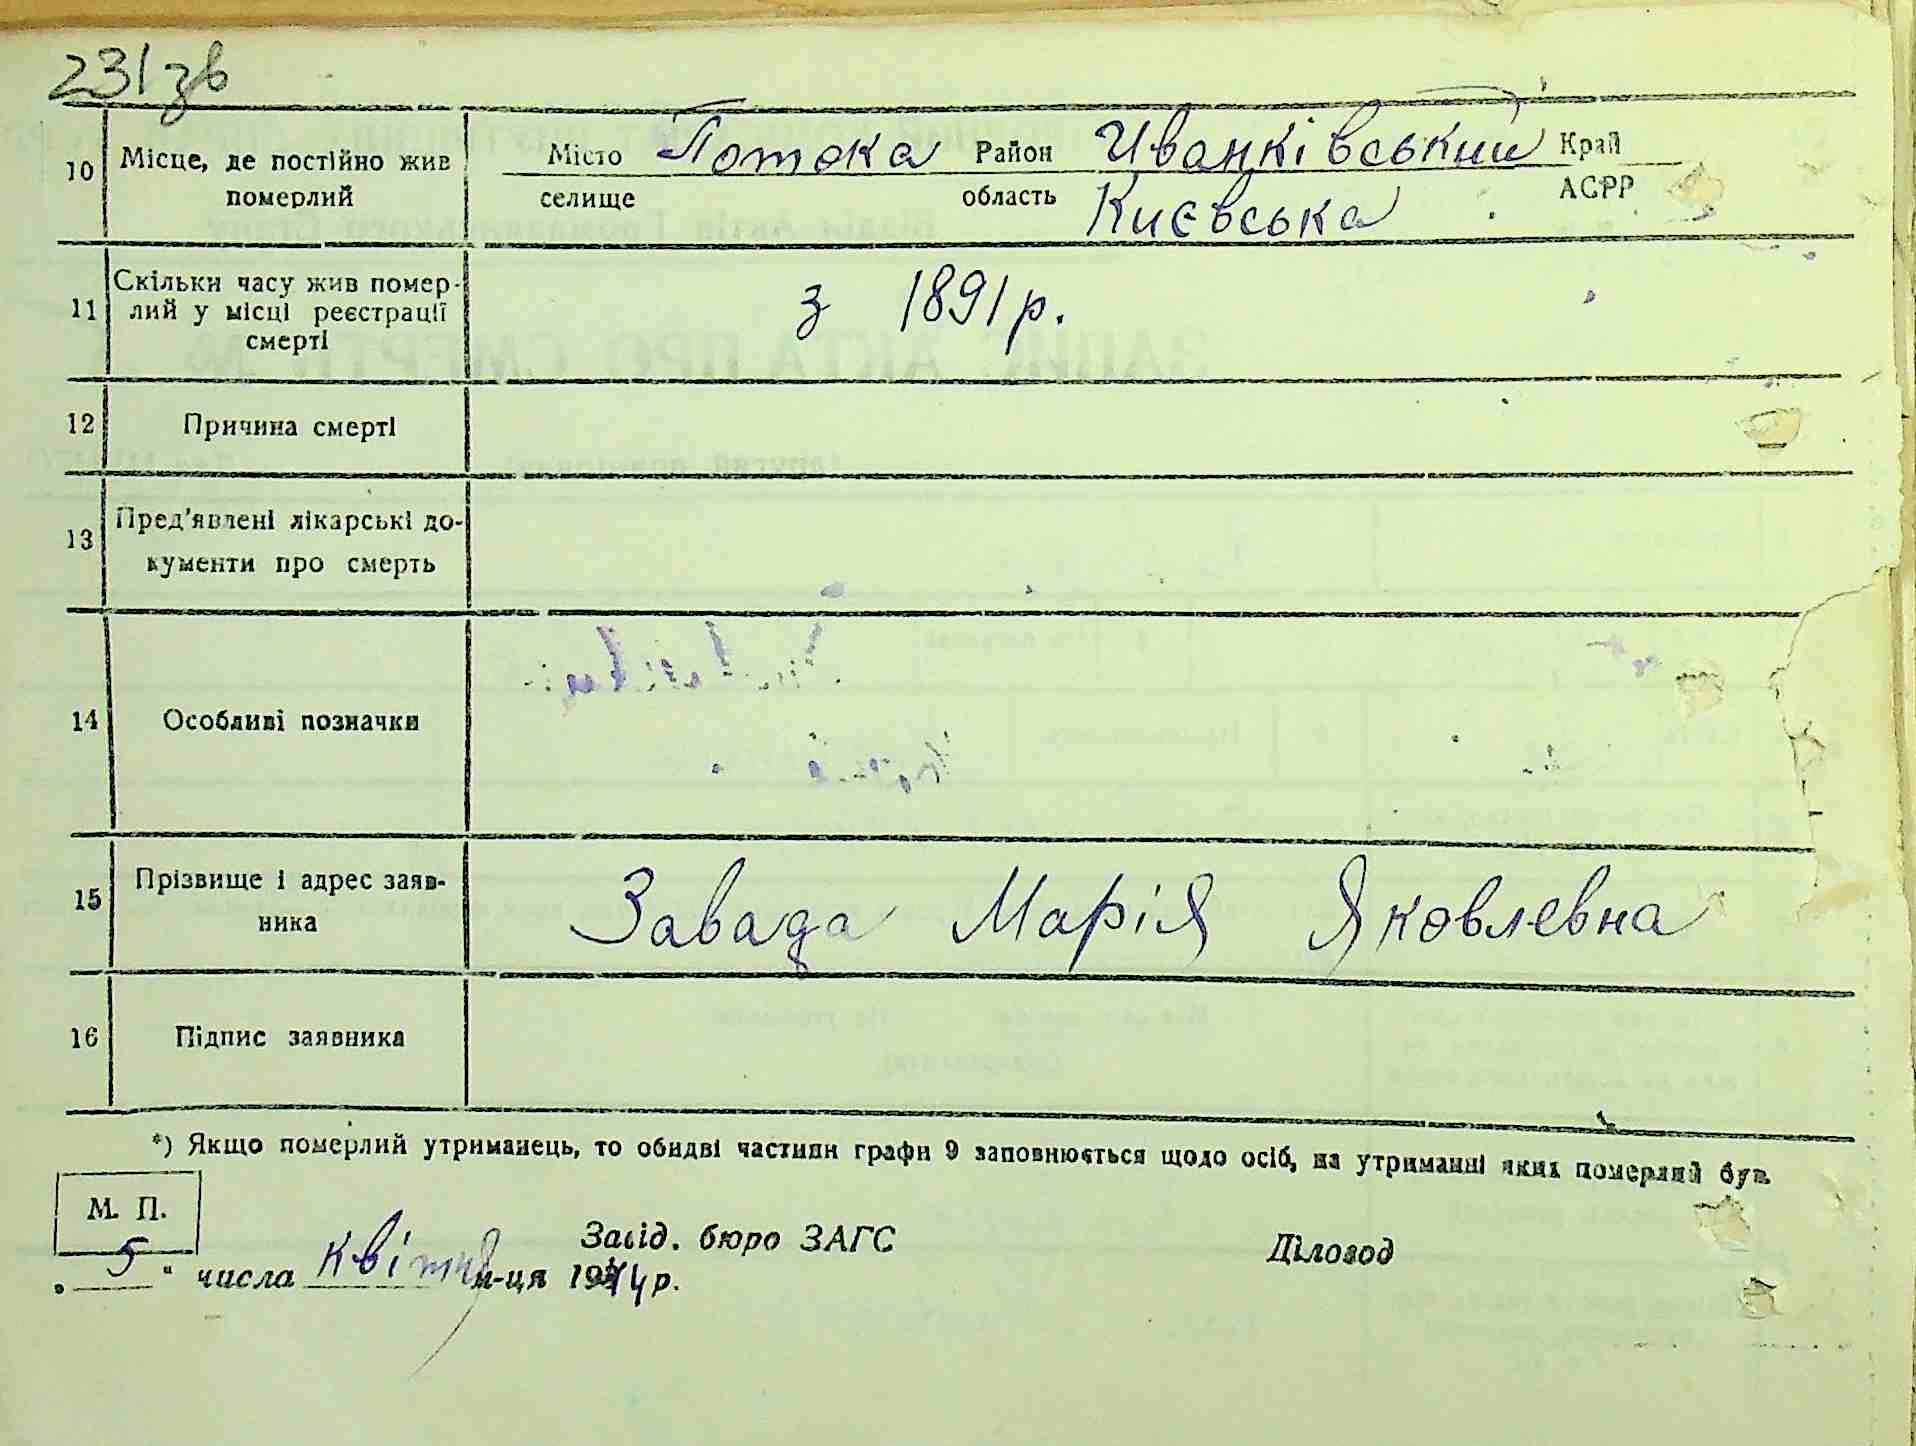 231 зв
10 Місце, де постійно жив померлий Місто Потока Район Иванківський Край
селище область Києвська АСРР
11 Скільки часу жив помер-
лий у місці реєстрації
смерті
з 1891 р.
12 Причина смерті
13 Пред'явлені лікарські до-
кументи про смерть
14 Особливі позначки
15 Прізвище і адрес заяв-
ника
Завада Марія Яковлевна
16 Підпис заявника
*) Якщо померлий утриманець, то обидві частини графи 9 заповнюється щодо осіб, на утриманні яких померлий був.
М. П.
Завід. бюро ЗАГС Діловод
„ 5 “ числа квітня м-ця 1944 р.